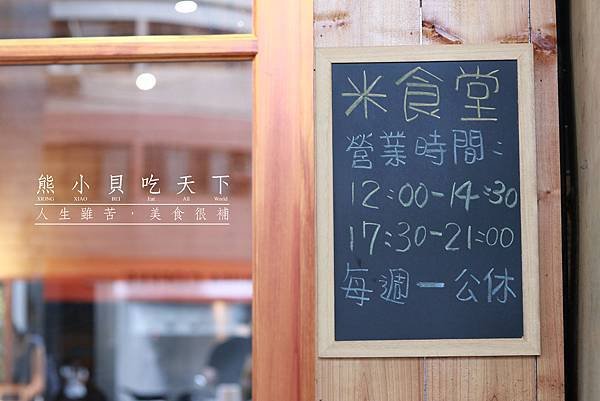 米食堂
營業時間:
12:00-14:30
17:30-21:00
每週一公休
熊小貝吃天下
XIONG XIAO BEI Eat All World
人生雖苦，美食很補